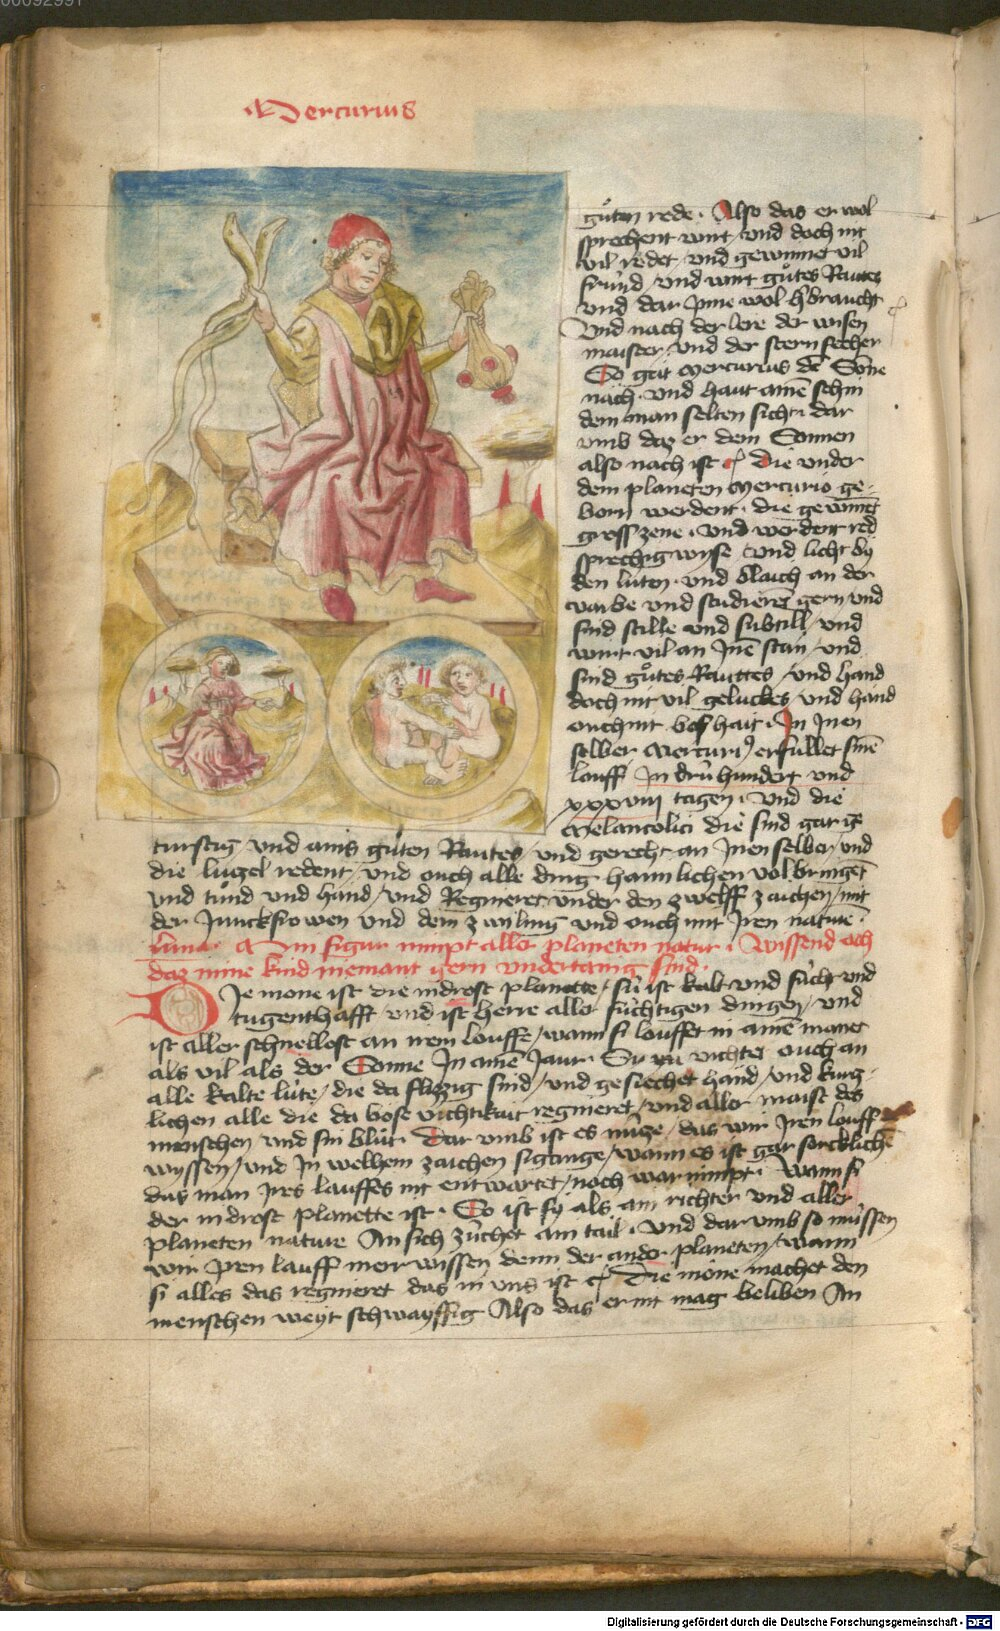 00092991
Mercurius
gůten rede · Also das er wol
sprechent wirt / vnd doch nit
vil redet vnd gewinnet vil
frúnd / vnd wirt gůtes Rautes
vnd dar Inne wol gebraucht
Vnd nach der lere der wisen
maister / vnd der stern secher
So gat Mercurius der Sonne
nach · vnd haut ainen schin
dem man selten sicht dar
vmb daz er dem Sonnen
also nach ist Die vnder
dem planeten Mercurio ge-
born werdent · die gewinnet
gross zene · vnd werdent red
sprechig wyse vnd licht by
den lúten · vnd blaich an der
varbe vnd studieret gern vnd
sind stille vnd subtill / vnd
wirt vil an Inen stan / vnd
sind gůtes Rauttes / vnd hand
doch nit vil geluckes / vnd hand
ouch nit boshait · In Inen
selber Mercuri9 erfullet sinen
louff In drú hundert vnd
xxxviij tagen · Vnd die
Melancolici die sind gar
turstig vnd ains gůten Rautes / vnd gerecht an Inen selber vnd
die lugel redent / vnd ouch alle ding haimlichen volbringet
vnd tůnd vnd hand / vnd Regnieret vnder den zwelff zaichen / mit
der Junckfrowen vnd dem zwiling vnd ouch mit Iren nature ·
Luna · Min figur nimpt aller planeten natur · Wissend och
daz mine kind niemant gern vndertänig sind ·
Die mone ist die nidrost planette / sú ist kalt vnd fúcht vnd
tugenthafft vnd ist herre aller fúchtigen dingen / vnd
ist aller schnellost an irem louffe / wann si louffet in ainem monet
als vil als der Sonne In ainem Jaur · Sy richtet ouch an
alle kalte lúte / die da fluzig sind / vnd gesiechet hand / vnd kurz-
lichen alle die da böse vichtikait regnieret / vnd aller maist des
menschen vnd sin blůt · Dar vmb ist es núze / das wir Iren louff
wyssen / vnd In welhem zaichen si gange / wann es ist gar sorcklichen
das man Ires lauffes nit entwartet / noch war nimpt · Wann si
der nidrost planette ist · So ist sy als ain richter vnd aller
planeten nature An sich zúchet ain tail · vnd dar vmb so müssen
wir Iren lauff merr wissen denn der ander planeten / wann
si alles das regnieret das in vns ist Die mone machet den
menschen weyt schwayffig Also das er nit mag beliben An
Digitalisierung gefördert durch die Deutsche Forschungsgemeinschaft - DFG